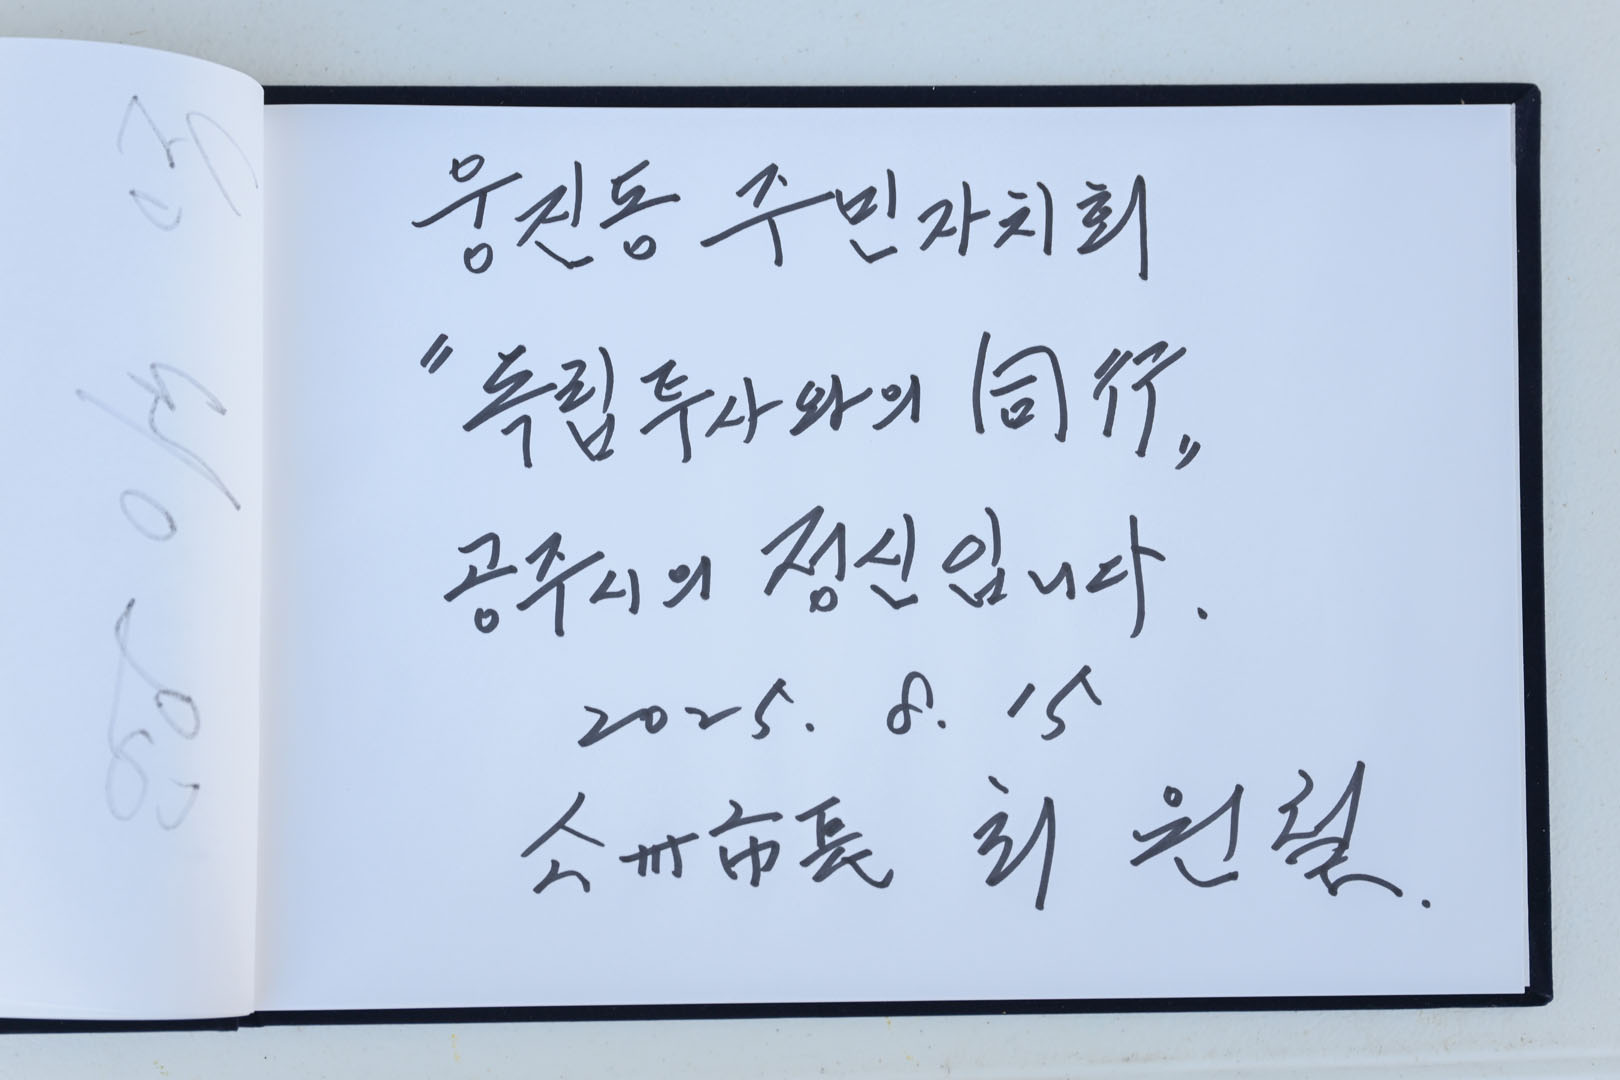 웅진동 주민자치회
"독립투사와의 同行"
공주시의 정신입니다.
2025. 8. 15
公州市長 최원철.